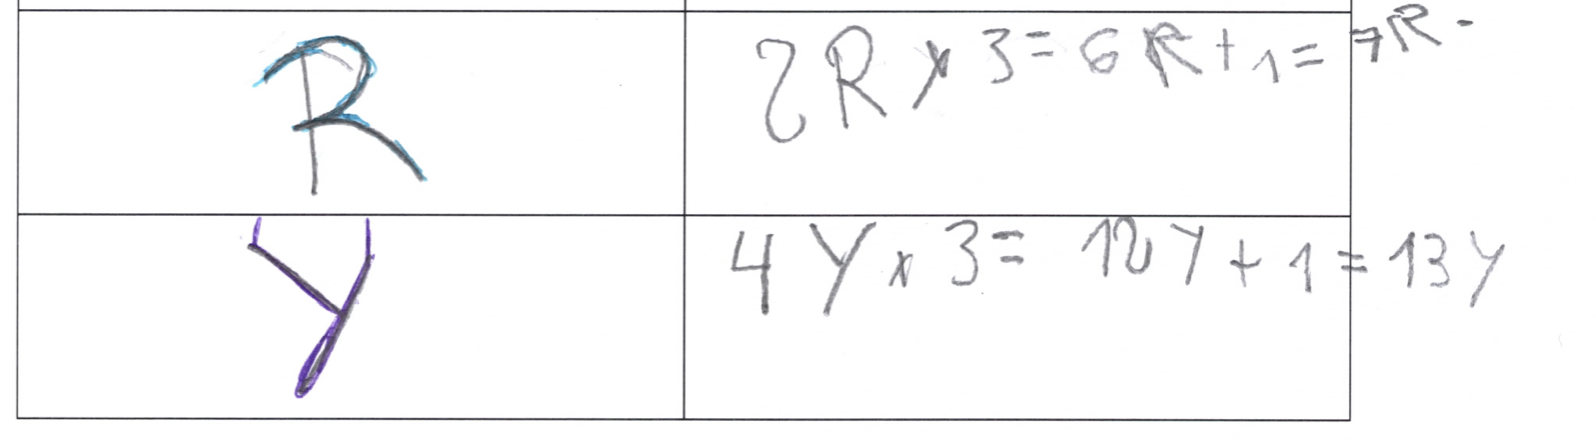 R
2R x 3 = 6R + 1 = 7R.
Y
4Y x 3 = 12Y + 1 = 13Y